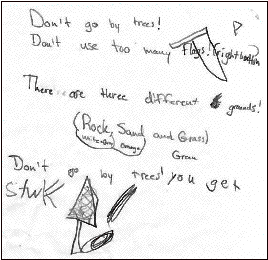 Don't go by trees!
Don't use too many flags!
There are three different grounds!
(Rock, Sand and Grass)
Orange
Don't go by trees! you get
stuk